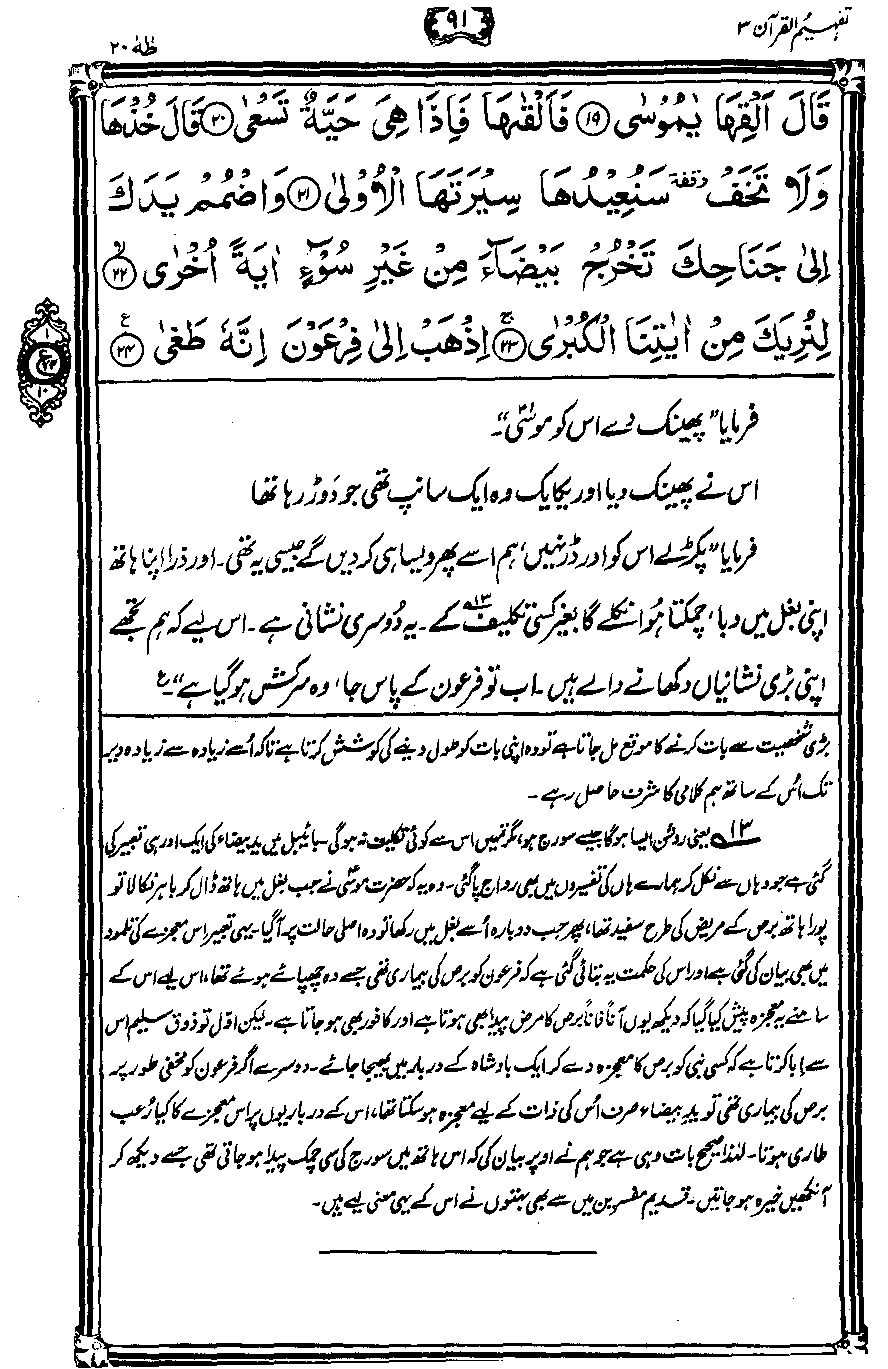 تفہیم القرآن ۳
۹۱
طٰہٰ ۲۰
قَالَ اَلْقِهَا یٰمُوْسٰى ۝۱۹ فَاَلْقٰىهَا فَاِذَا هِیَ حَیَّةٌ تَسْعٰى ۝۲۰ قَالَ خُذْهَا
وَلَا تَخَفْ ٝ وقفۃ سَنُعِیْدُهَا سِیْرَتَهَا الْاُوْلٰى ۝۲۱ وَاضْمُمْ یَدَكَ
اِلٰى جَنَاحِكَ تَخْرُجْ بَیْضَآءَ مِنْ غَیْرِ سُوْٓءٍ اٰیَةً اُخْرٰى ۝۲۲
لِنُرِیَكَ مِنْ اٰیٰتِنَا الْكُبْرٰى ۝۲۳ اِذْهَبْ اِلٰى فِرْعَوْنَ اِنَّهٗ طَغٰى ۝۲۴
فرمایا”پھینک دے اس کو موسیٰؑ“۔
اس نے پھینک دیا اور یکایک وہ ایک سانپ تھی جو دَوڑ رہا تھا
فرمایا”پکڑ لے اس کو اور ڈر نہیں، ہم اسے پھر ویسا ہی کر دیں گے جیسی یہ تھی۔ اور ذرا اپنا ہاتھ
اپنی بغل میں دبا، چمکتا ہُوا نکلے گا بغیر کسی تکلیف۱۳؎ کے۔ یہ دُوسری نشانی ہے۔ اس لیے کہ ہم تجھے
اپنی بڑی نشانیاں دکھانے والے ہیں۔ اب تو فرعون کے پاس جا، وہ سرکش ہو گیا ہے“۔ ع
بڑی شخصیت سے بات کرنے کا موقع مل جاتا ہے تو وہ اپنی بات کو طول دینے کی کوشش کرتا ہے تاکہ اُسے زیادہ سے زیادہ دیر
تک اُس کے ساتھ ہم کلامی کا شرف حاصل رہے۔
۱۳؎ یعنی روشن ایسا ہوگا جیسے سورج ہو، مگر تمہیں اس سے کوئی تکلیف نہ ہوگی۔ بائیبل میں یدِ بیضاء کی ایک اور ہی تعبیر کی
گئی ہے جو وہاں سے نکل کر ہمارے ہاں کی تفسیروں میں بھی رواج پا گئی۔ وہ یہ کہ حضرت موسیٰؑ نے جب بغل میں ہاتھ ڈال کر باہر نکالا تو
پورا ہاتھ برص کے مریض کی طرح سفید تھا، پھر جب دوبارہ اُسے بغل میں رکھا تو وہ اصلی حالت پر آگیا۔ یہی تعبیر اس معجزے کی تلمود
میں بھی بیان کی گئی ہے اور اس کی حکمت یہ بتائی گئی ہے کہ فرعون کو برص کی بیماری تھی جسے وہ چھپائے ہوئے تھا، اس لیے اس کے
سامنے یہ معجزہ پیش کیا گیا کہ دیکھ یوں آناً فاناً برص کا مرض پیدا بھی ہوتا ہے اور کافور بھی ہو جاتا ہے۔ لیکن اوّل تو ذوق سلیم اس
سے اِبا کرتا ہے کہ کسی نبی کو برص کا معجزہ دے کر ایک بادشاہ کے دربار میں بھیجا جائے۔ دوسرے اگر فرعون کو مخفی طور پر
برص کی بیماری تھی تو یدِ بیضاء صرف اُس کی ذات کے لیے معجزہ ہو سکتا تھا، اس کے درباریوں پر اس معجزے کا کیا رُعب
طاری ہوتا۔ لہٰذا صحیح بات وہی ہے جو ہم نے اوپر بیان کی کہ اس ہاتھ میں سورج کی سی چمک پیدا ہو جاتی تھی جسے دیکھ کر
آنکھیں خیرہ ہو جاتیں۔ قدیم مفسرین میں سے بھی بہتوں نے اس کے یہی معنی لیے ہیں۔